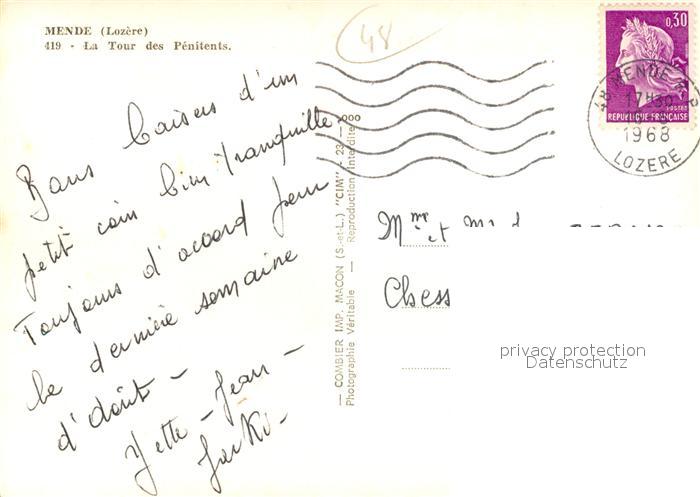 MENDE (Lozère)
419 - La Tour des Pénitents.
48
0,30
POSTES
REPUBLIQUE FRANÇAISE
48 MENDE R.P
17H30
1968
LOZERE
Bons baisers d'un
petit coin bien tranquille.
Toujours d'accord pour
la dernière semaine
d'août -
Yette - Jean -
COMBIER IMP. MACON (S.-et-L.) "CIM"
Photographie Véritable - Reproduction Interdite
Mme et
Chess
privacy protection
Datenschutz